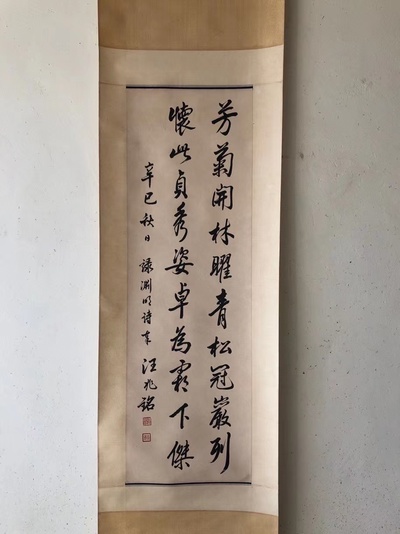 芳菊開林曜青松冠巖列
懷此貞秀姿卓為霜下傑
辛巳秋日 録淵明詩本 汪兆銘